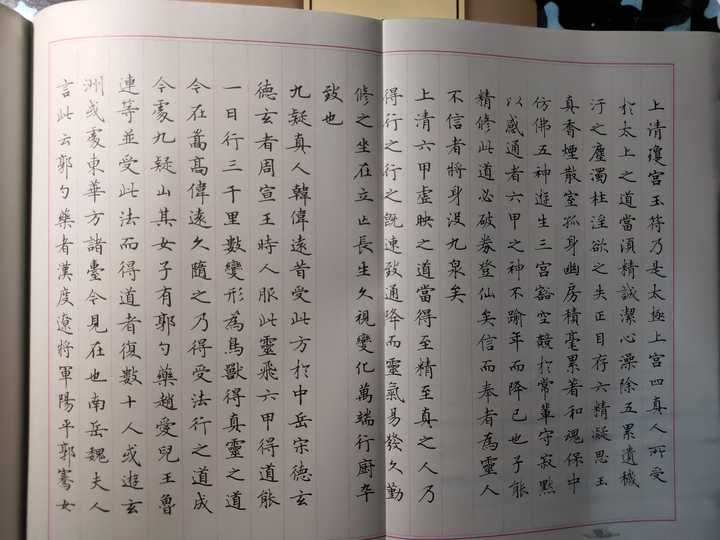 上清瓊宮玉符乃是太極上宮四真人所受
於太上之道當須精誠潔心澡除五累遺穢
汙之塵濁杜淫欲之失正目存六精凝思玉
真香煙散室孤身幽房積毫累著和魂保中
仿佛五神遊生三宮豁空競於常輩守寂默
以感通者六甲之神不踰年而降已也子能
精修此道必破券登仙矣信而奉者為靈人
不信者將身沒九泉矣
上清六甲虛映之道當得至精至真之人乃
得行之行之既速致通降而靈氣易發久勤
修之坐在立亡長生久視變化萬端行廚卒
致也
九疑真人韓偉遠昔受此方於中岳宋德玄
德玄者周宣王時人服此靈飛六甲得道能
一日行三千里數變形為鳥獸得真靈之道
今在嵩高偉遠久隨之乃得受法行之道成
今處九疑山其女子有郭勺藥趙愛兒王魯
連等並受此法而得道者復數十人或遊玄
洲或處東華方諸臺今見在也南岳魏夫人
言此云郭勺藥者漢度遼將軍陽平郭騫女